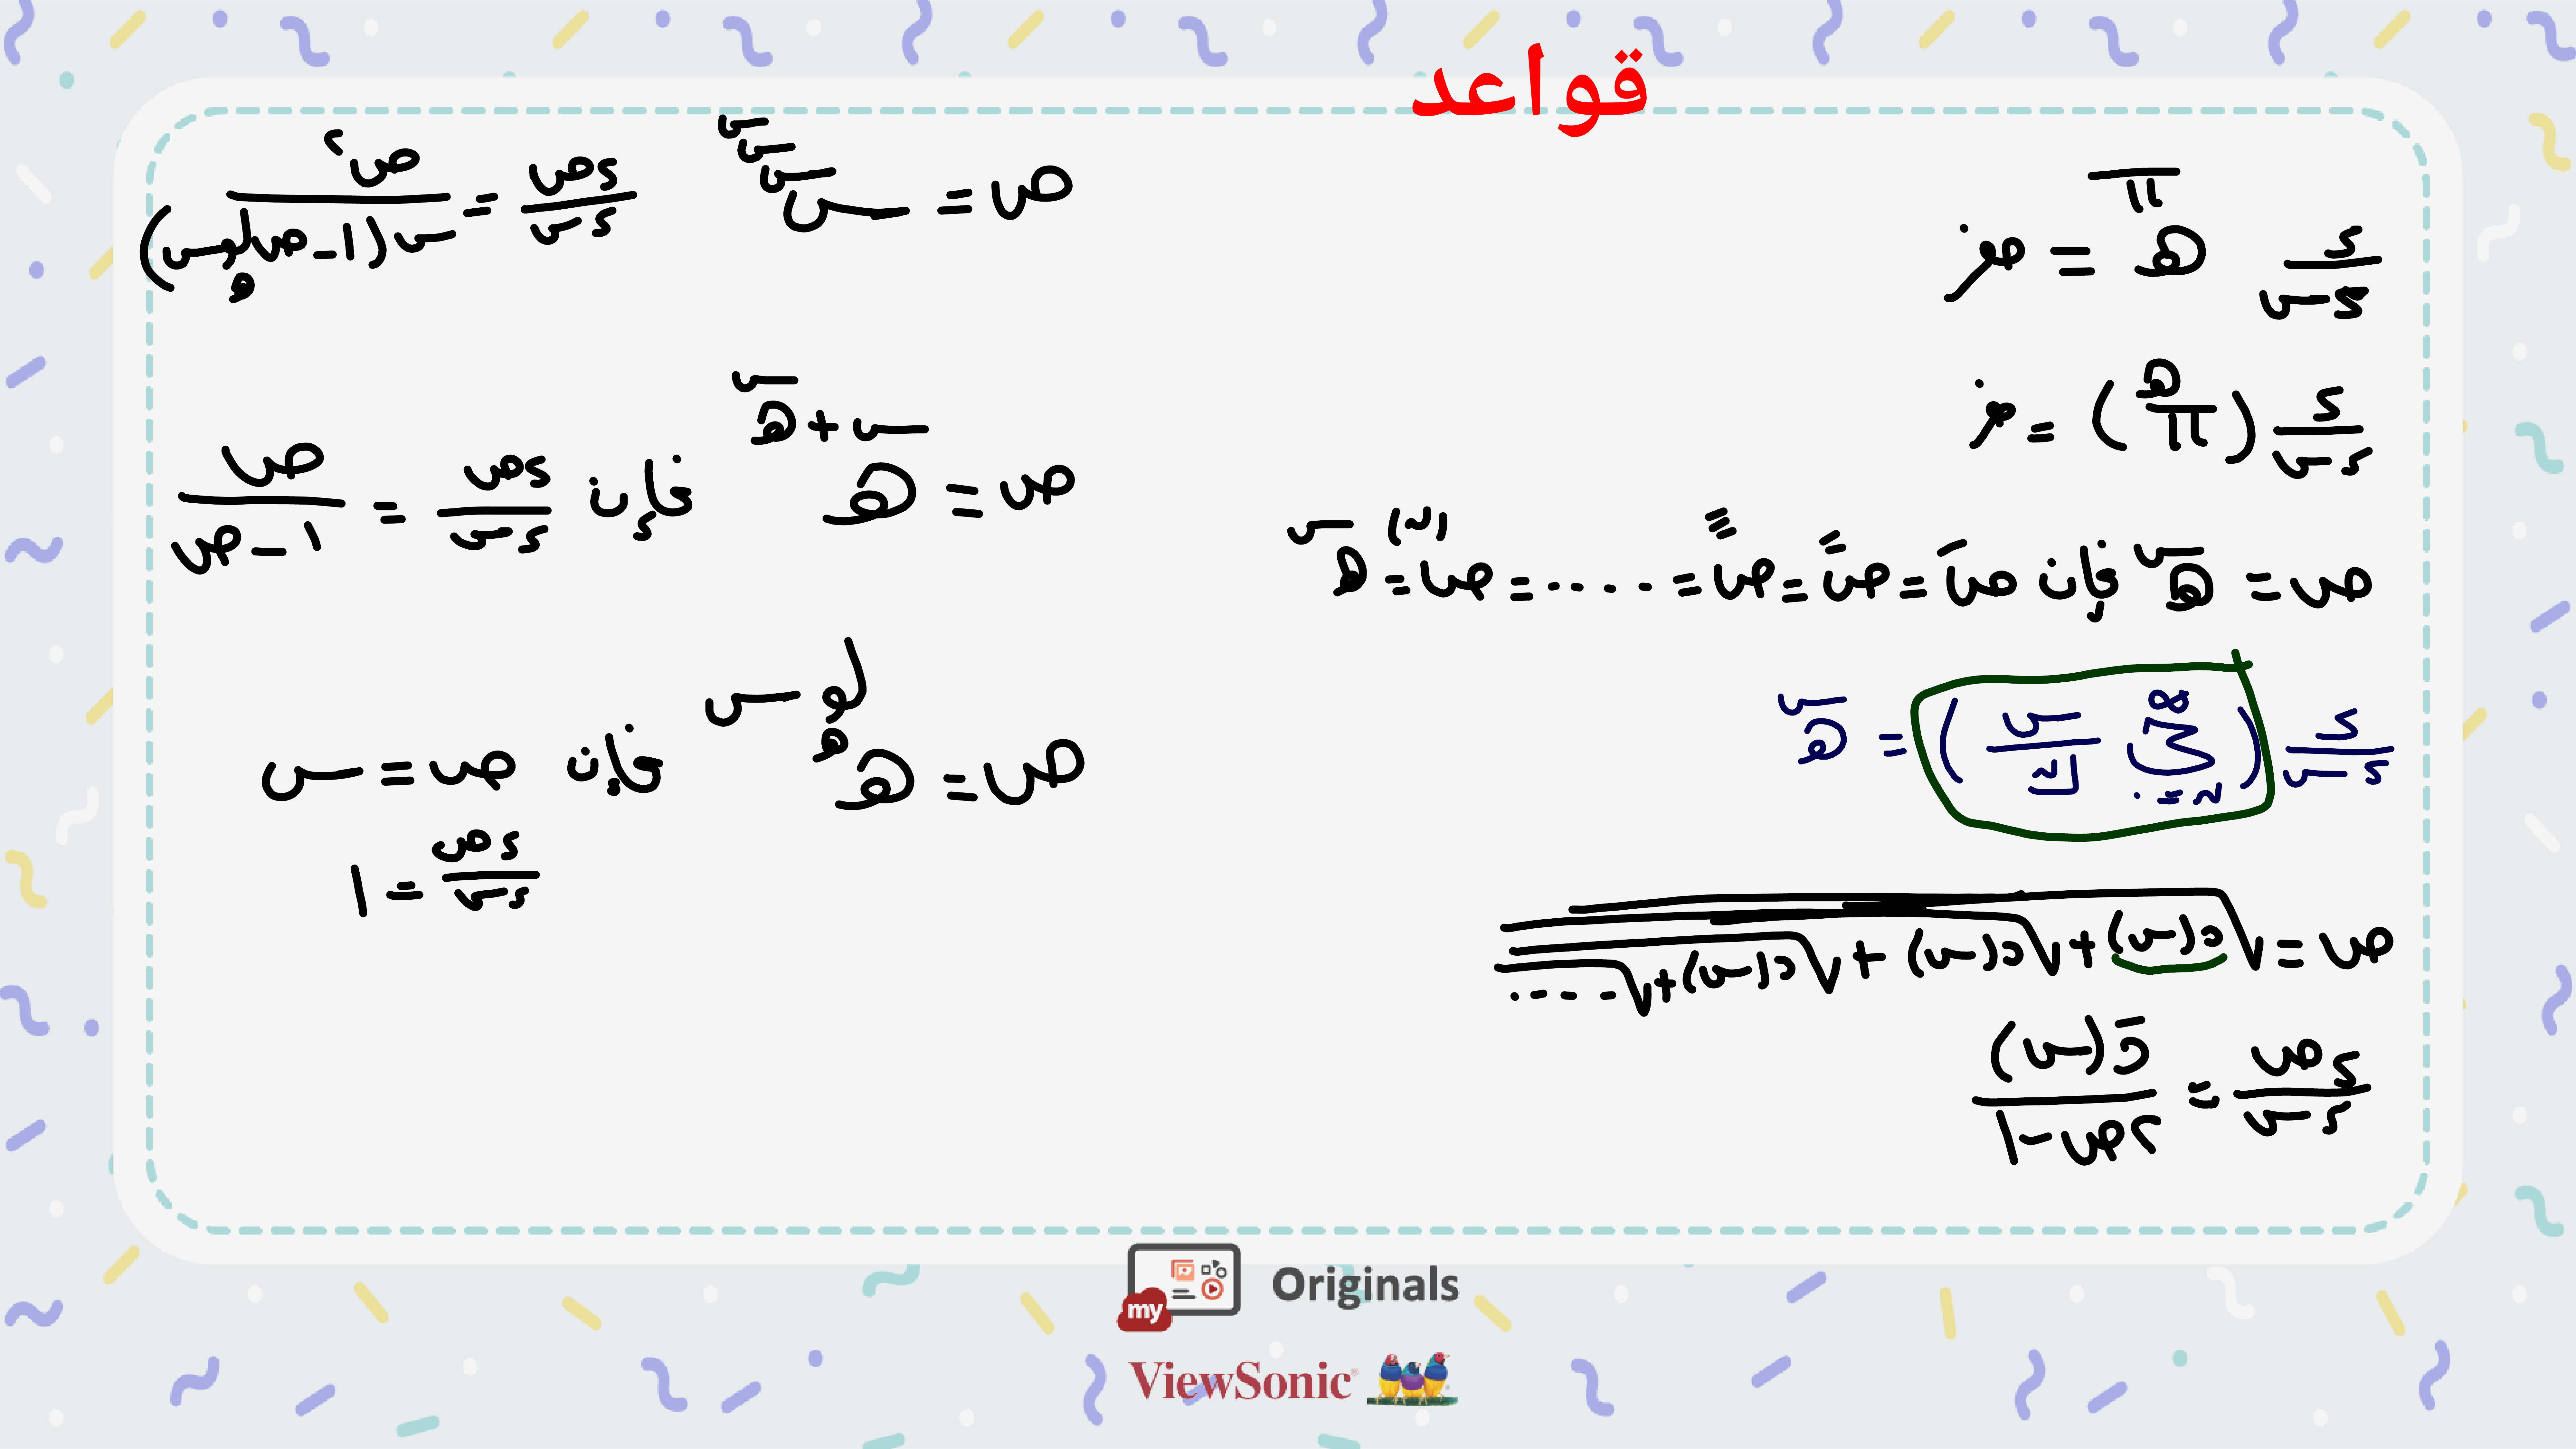 قواعد
د/دس هـ^π = صفر
د/دس (هـ/π) = صفر
ص = هـ^س فإن صَ = ص˝ = ص‴ = ..... = ص^(ن) = هـ^س
د/دس (∑_{ن=٠}^{∞} س^ن/ن!) = هـ^س
ص = √(د(س) + √(د(س) + √(د(س) + √.....
دص/دس = دَ(س)/(٢ص-١)
ص = س^س^س^س دص/دس = ص^٢/(س(١-ص لو_هـ س))
ص = هـ^(س+هـ^س) فإن دص/دس = ص/(١-ص)
ص = هـ^(لو_هـ س) فإن ص = س
دص/دس = ١
my Originals
ViewSonic